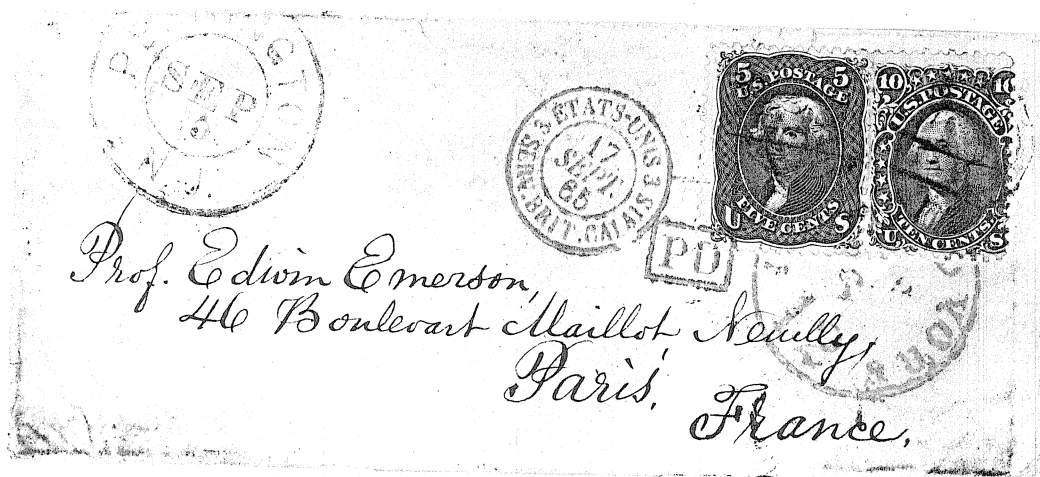 SEP
6
N.J.
3 ÉTATS-UNIS 3
SERV. BRIT. CALAIS
17
SEPT.
65
PD
5 5
U.S. POSTAGE
FIVE CENTS
U S
10 10
U.S. POSTAGE
TEN CENTS
U S
Prof. Edwin Emerson,
46 Boulevart Maillot, Neuilly,
Paris,
France.